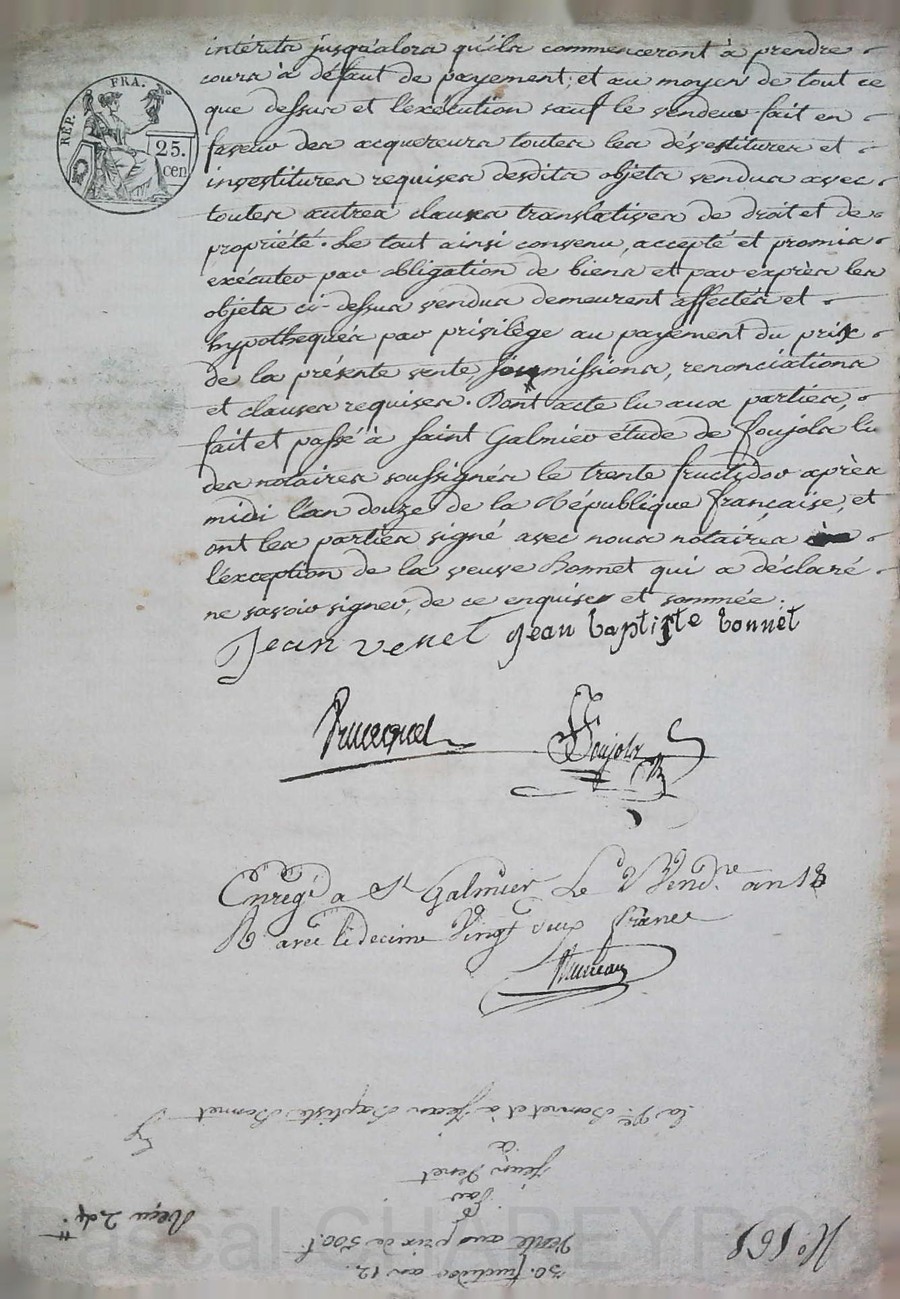 intérêts jusqu'alors qu'ils commenceront à prendre
cours à défaut de payement; et au moyen de tout ce
que dessus et l'exécution sauf le vendeur fait en
faveur des acquereurs toutes les dévestitures et
investitures requises desdits objets vendus avec
toutes autres clauses translatives de droit et de
propriété. Le tout ainsi convenu, accepté et promis
exécuter par obligation de biens et par exprès les
objets ci-dessus vendus demeurent affectés et
hypothequés par privilège au payement du prix
de la présente vente, soumissions, renonciations
et clauses requises. Dont acte lu aux parties,
fait et passé à Saint Galmier étude de Soujols, lu
des notaires soussignés le trente fructidor après
midi l'an douze de la République française, et
ont les parties signé avec nous notaires
l'exception de la veuve Bonnet qui a déclaré
ne savoir signer, de ce enquise et sommée.
Jean venet jean baptiste bonnet
Soujols
RÉP. FRA.
25.
cen
Enregé a St Galmier Le 2 Vendre an 13
R avec le decime Vingt deux francs
No 161
30. fructidor an 12.
Vente au prix de 500 f.
par
Jean Venet
à
la Ve. Bonnet et à Jean Baptiste Bonnet
Reçu 2
Pascal CHAPEYRON